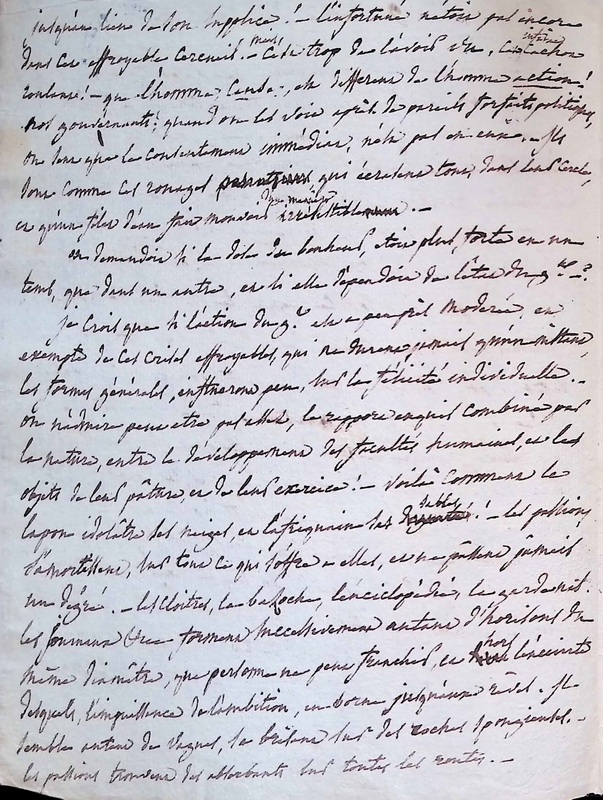 jusqu'au lieu de son supplice! — l'infortuné n'étoit pas encore
dans cet effroyable cerceuil. — mais c'était trop de l'avoir vu, ce cachot
roulant! — que l'homme est différent de l'homme action!
nos gouvernants! quand on les voit après de pareils forfaits politiques,
on sent que le consentement immédiat, n'est pas en eux. — ils
sont comme ces rouages qui écrasent tout, dans leur cercle,
et qu'un filet d'eau fait mouvoir d'une manière
on demandoit si la dose du bonheur, étoit plus forte en un
tems, que dans un autre, et si elle dépendoit de l'état du g.nt — ?
je crois que si l'action du g.t est a peu près modérée, et
exempte de ces crises effroyables, qui ne durent jamais qu'un instant,
les formes générales, influeront peu, sur la félicité individuelle. —
on n'admire peut etre pas assez, le rapport exquis combiné par
la nature, entre le développement des facultés humaines, et les
objets de leur pâture et de leur exercice! — voilà comment le
lapon idolâtre ses neiges, et l'affriquain ses sables! — les passions
s'amortissent, sur tout ce qui s'offre a elles, et ne passent jamais
un dégré. — les cloitres, la bazoche, l'enciclopédie, la garde nat.
les journaux &ca forment successivement autant d'horisons du
même diamètre, que personne ne peut franchir, et hors l'enceinte
desquels, l'impuissance de l'ambition, se borne jusqu'aux rêves. Il
semble autant de vagues, se brisant sur des roches spongieuses. —
les passions trouvent des absorbants sur toutes les routes. —